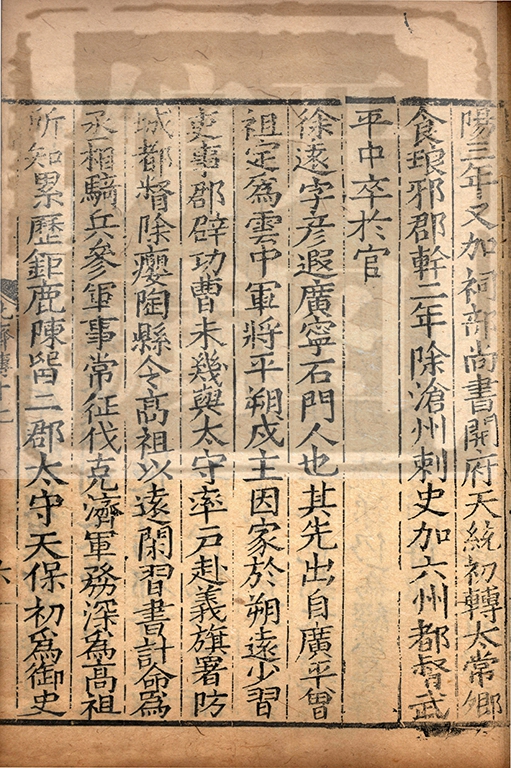 陽三年又加祠部尚書開府天統初轉太常卿
食琅邪郡幹二年除滄州刺史加六州都督武
平中卒於官
徐遠字彥遐廣寧石門人也其先出自廣平曾
祖定爲雲中軍將平朔戍主因家於朔遠少習
吏事郡辟功曹未幾與太守率戶赴義旗署防
城都督除癭陶縣令高祖以遠閑習書計命爲
丞相騎兵參軍事常征伐克濟軍務深爲高祖
所知累歷鉅鹿陳留二郡太守天保初爲御史